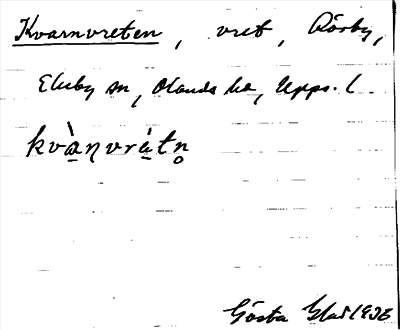 Kvarnvreten, vret, Rörby,
Ekeby sn, Olands hd, Upps. l.
kvàṇvrétn̥
Gösta